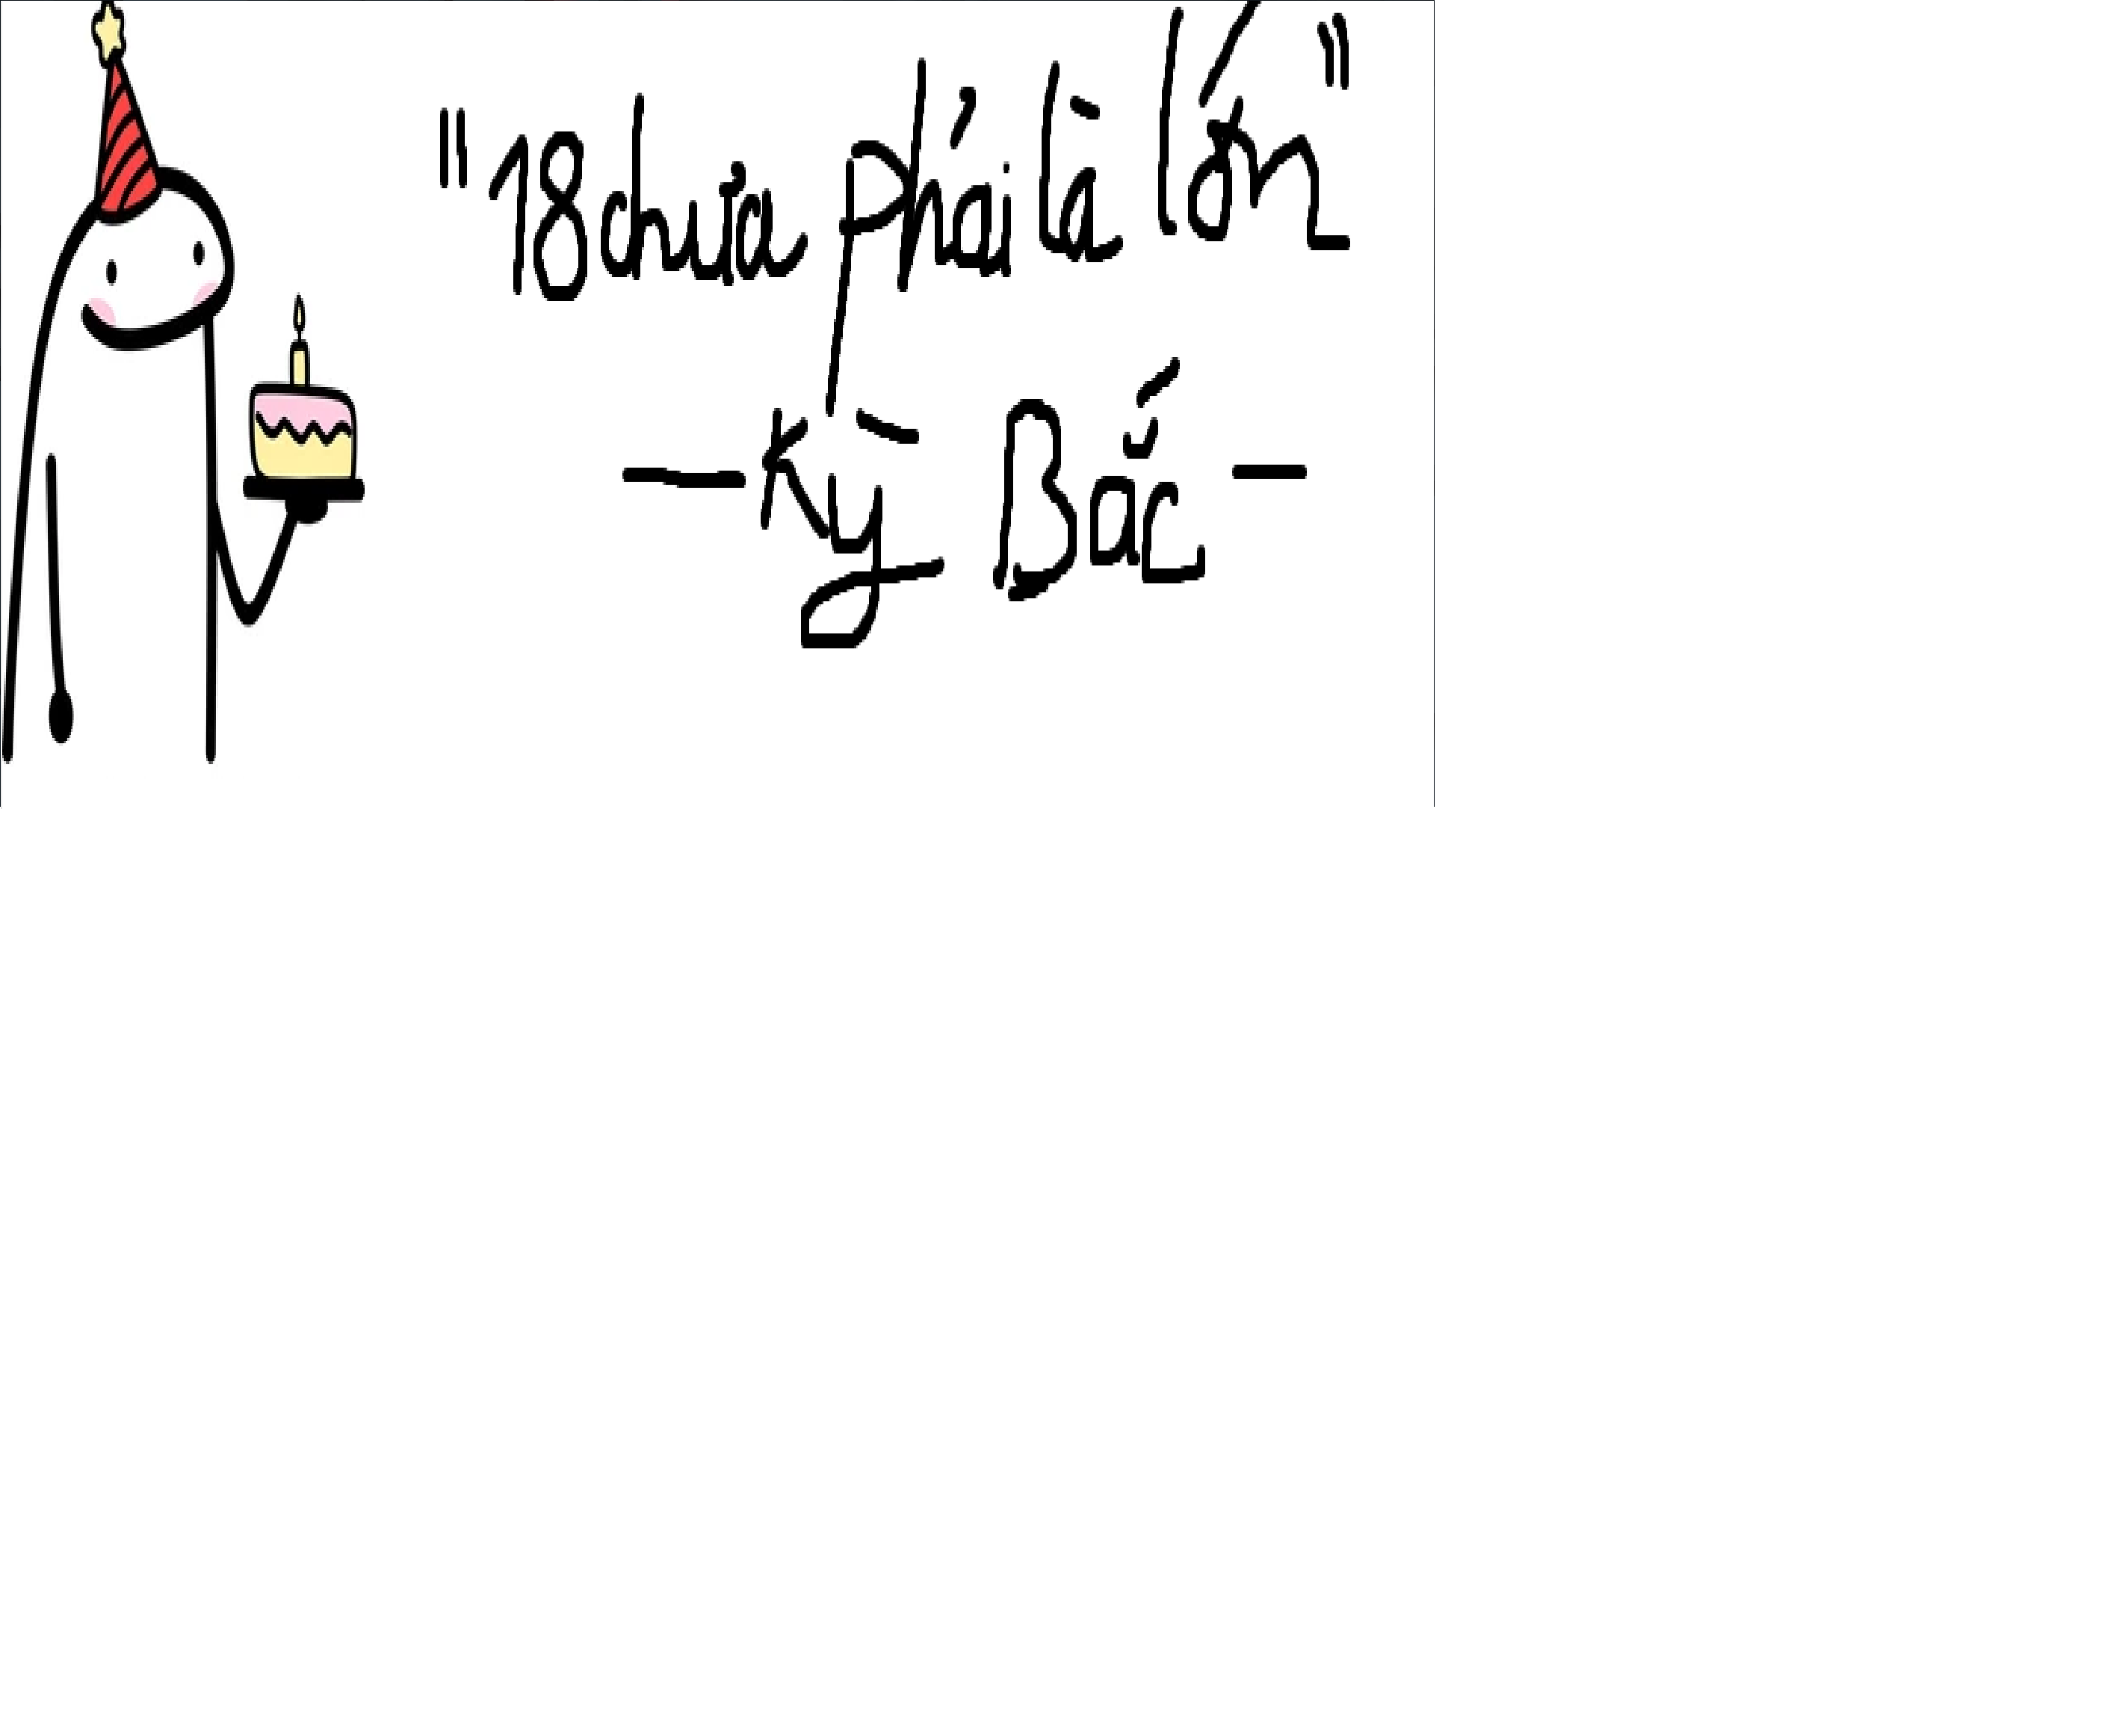 "18 chưa phải là lớn"
— Kỳ Bắc —